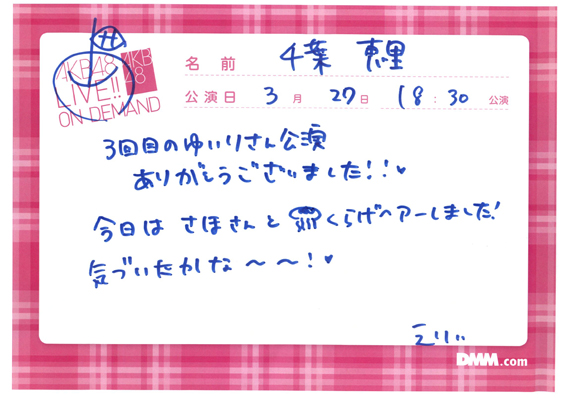 AKB48
LIVE!!
ON DEMAND
AKB
48
名前 千葉 恵里
公演日 3月 27日 18:30 公演
3回目のゆいりさん公演
ありがとうございました!!♥
今日は さほさんと くらげヘアーしました!
気づいたかな〜〜!♥
えりい
DMM.com